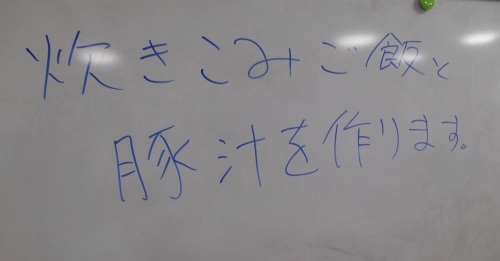 炊きこみご飯と
豚汁を作ります。